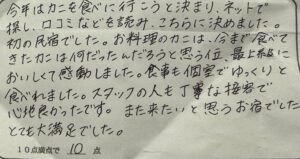 今年はカニを食べに行こうと決まり、ネットで
探し、口コミなどを読み、こちらに決めました。
初の民宿でした。お料理のカニは、今まで食べて
きたカニは何だったんだろうと思う位、最上級に
おいしくて感動しました。食事も個室でゆっくりと
食べれました。スタッフの人も丁寧な接客で
心地良かったです。また来たいと思うお宿でした
とても大満足でした。
10点満点で 10 点